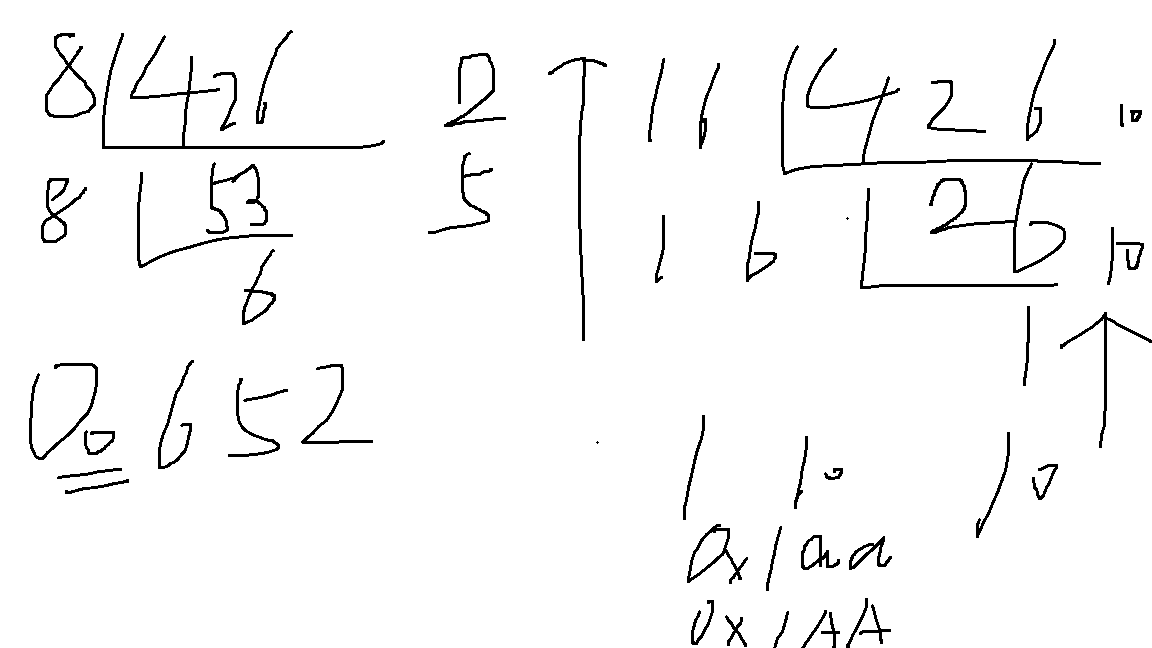 8 426 2
8 53 5
6
0o652
16 426 10
16 26 10
1
1 10 10
0x1aa
0x1AA